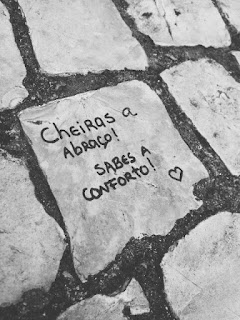 Cheiras a
Abraço!
SABES A
CONFORTO! ♡